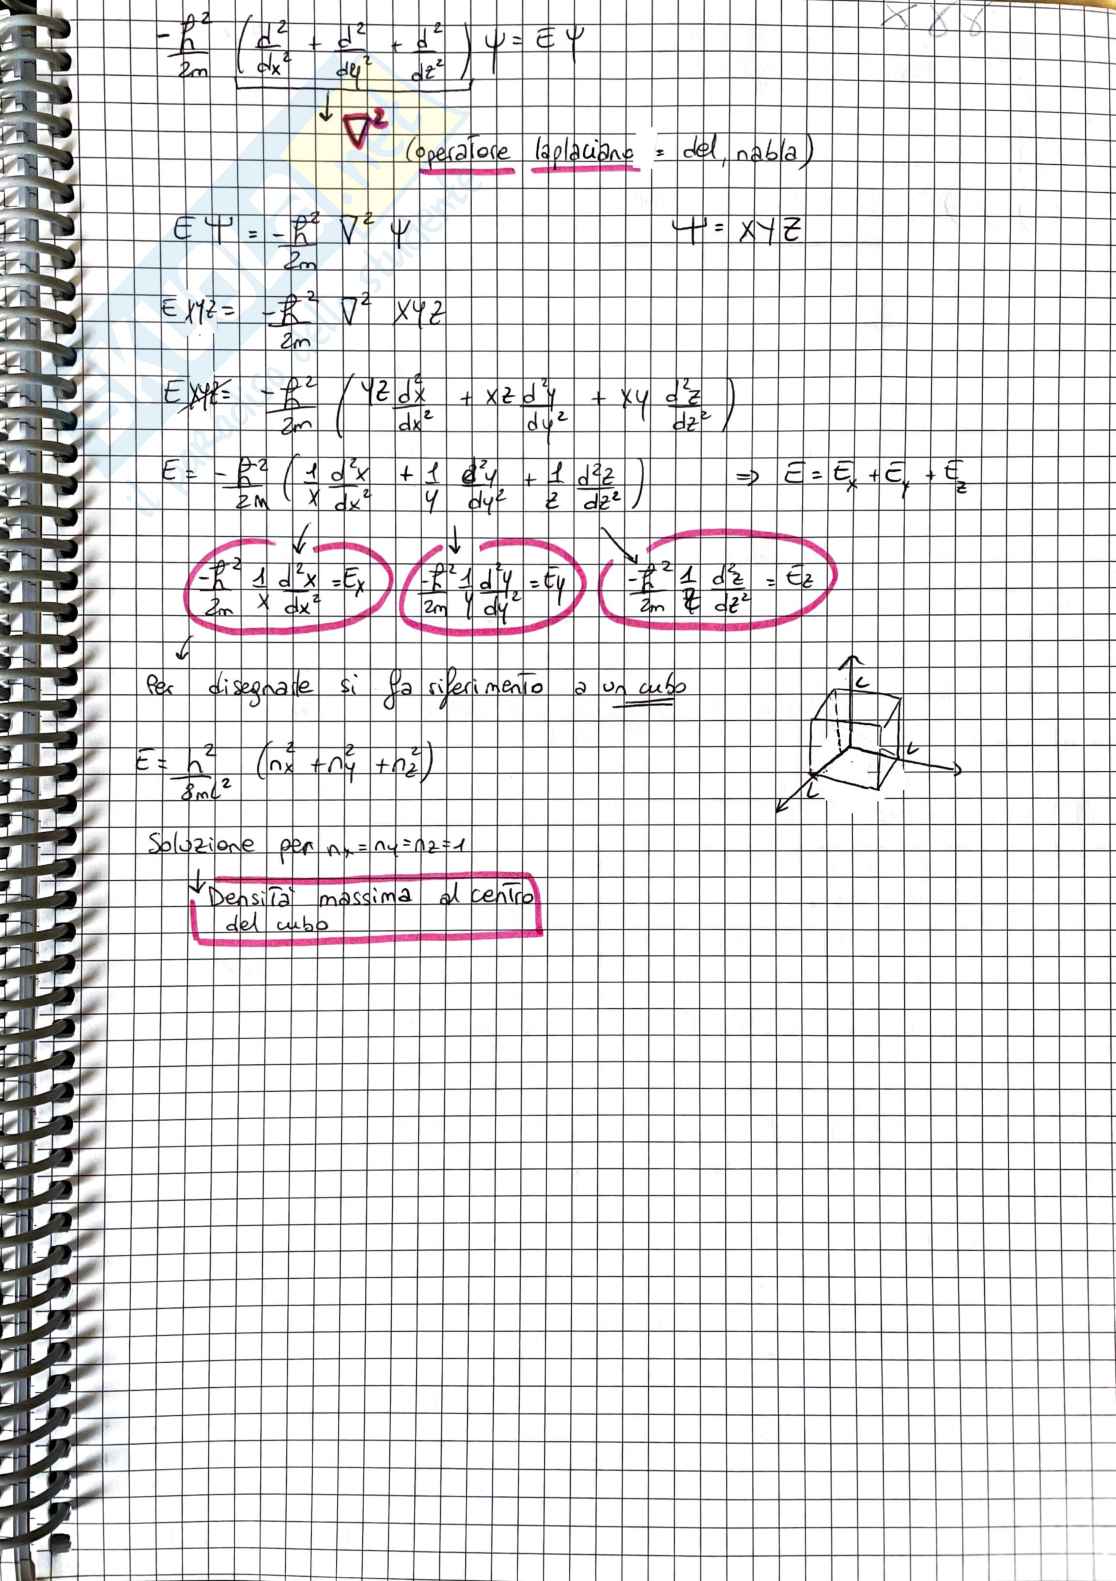 -ħ²/2m (d²/dx² + d²/dy² + d²/dz²) Ψ = E Ψ
↓ ∇²
(operatore laplaciano = del, nabla)
E Ψ = -ħ²/2m ∇² Ψ    Ψ = XYZ
E XYZ = -ħ²/2m ∇² XYZ
E XYZ = -ħ²/2m (YZ d²x/dx² + XZ d²y/dy² + XY d²z/dz²)
E = -ħ²/2m (1/X d²x/dx² + 1/Y d²y/dy² + 1/Z d²z/dz²) ⇒ E = Ex + Ey + Ez
-ħ²/2m 1/X d²x/dx² = Ex    -ħ²/2m 1/Y d²y/dy² = Ey    -ħ²/2m 1/Z d²z/dz² = Ez
Per disegnare si fa riferimento a un cubo
L
L
L
E = h²/8mL² (nx² + ny² + nz²)
Soluzione per nx = ny = nz = 1
↓ Densità massima al centro
del cubo